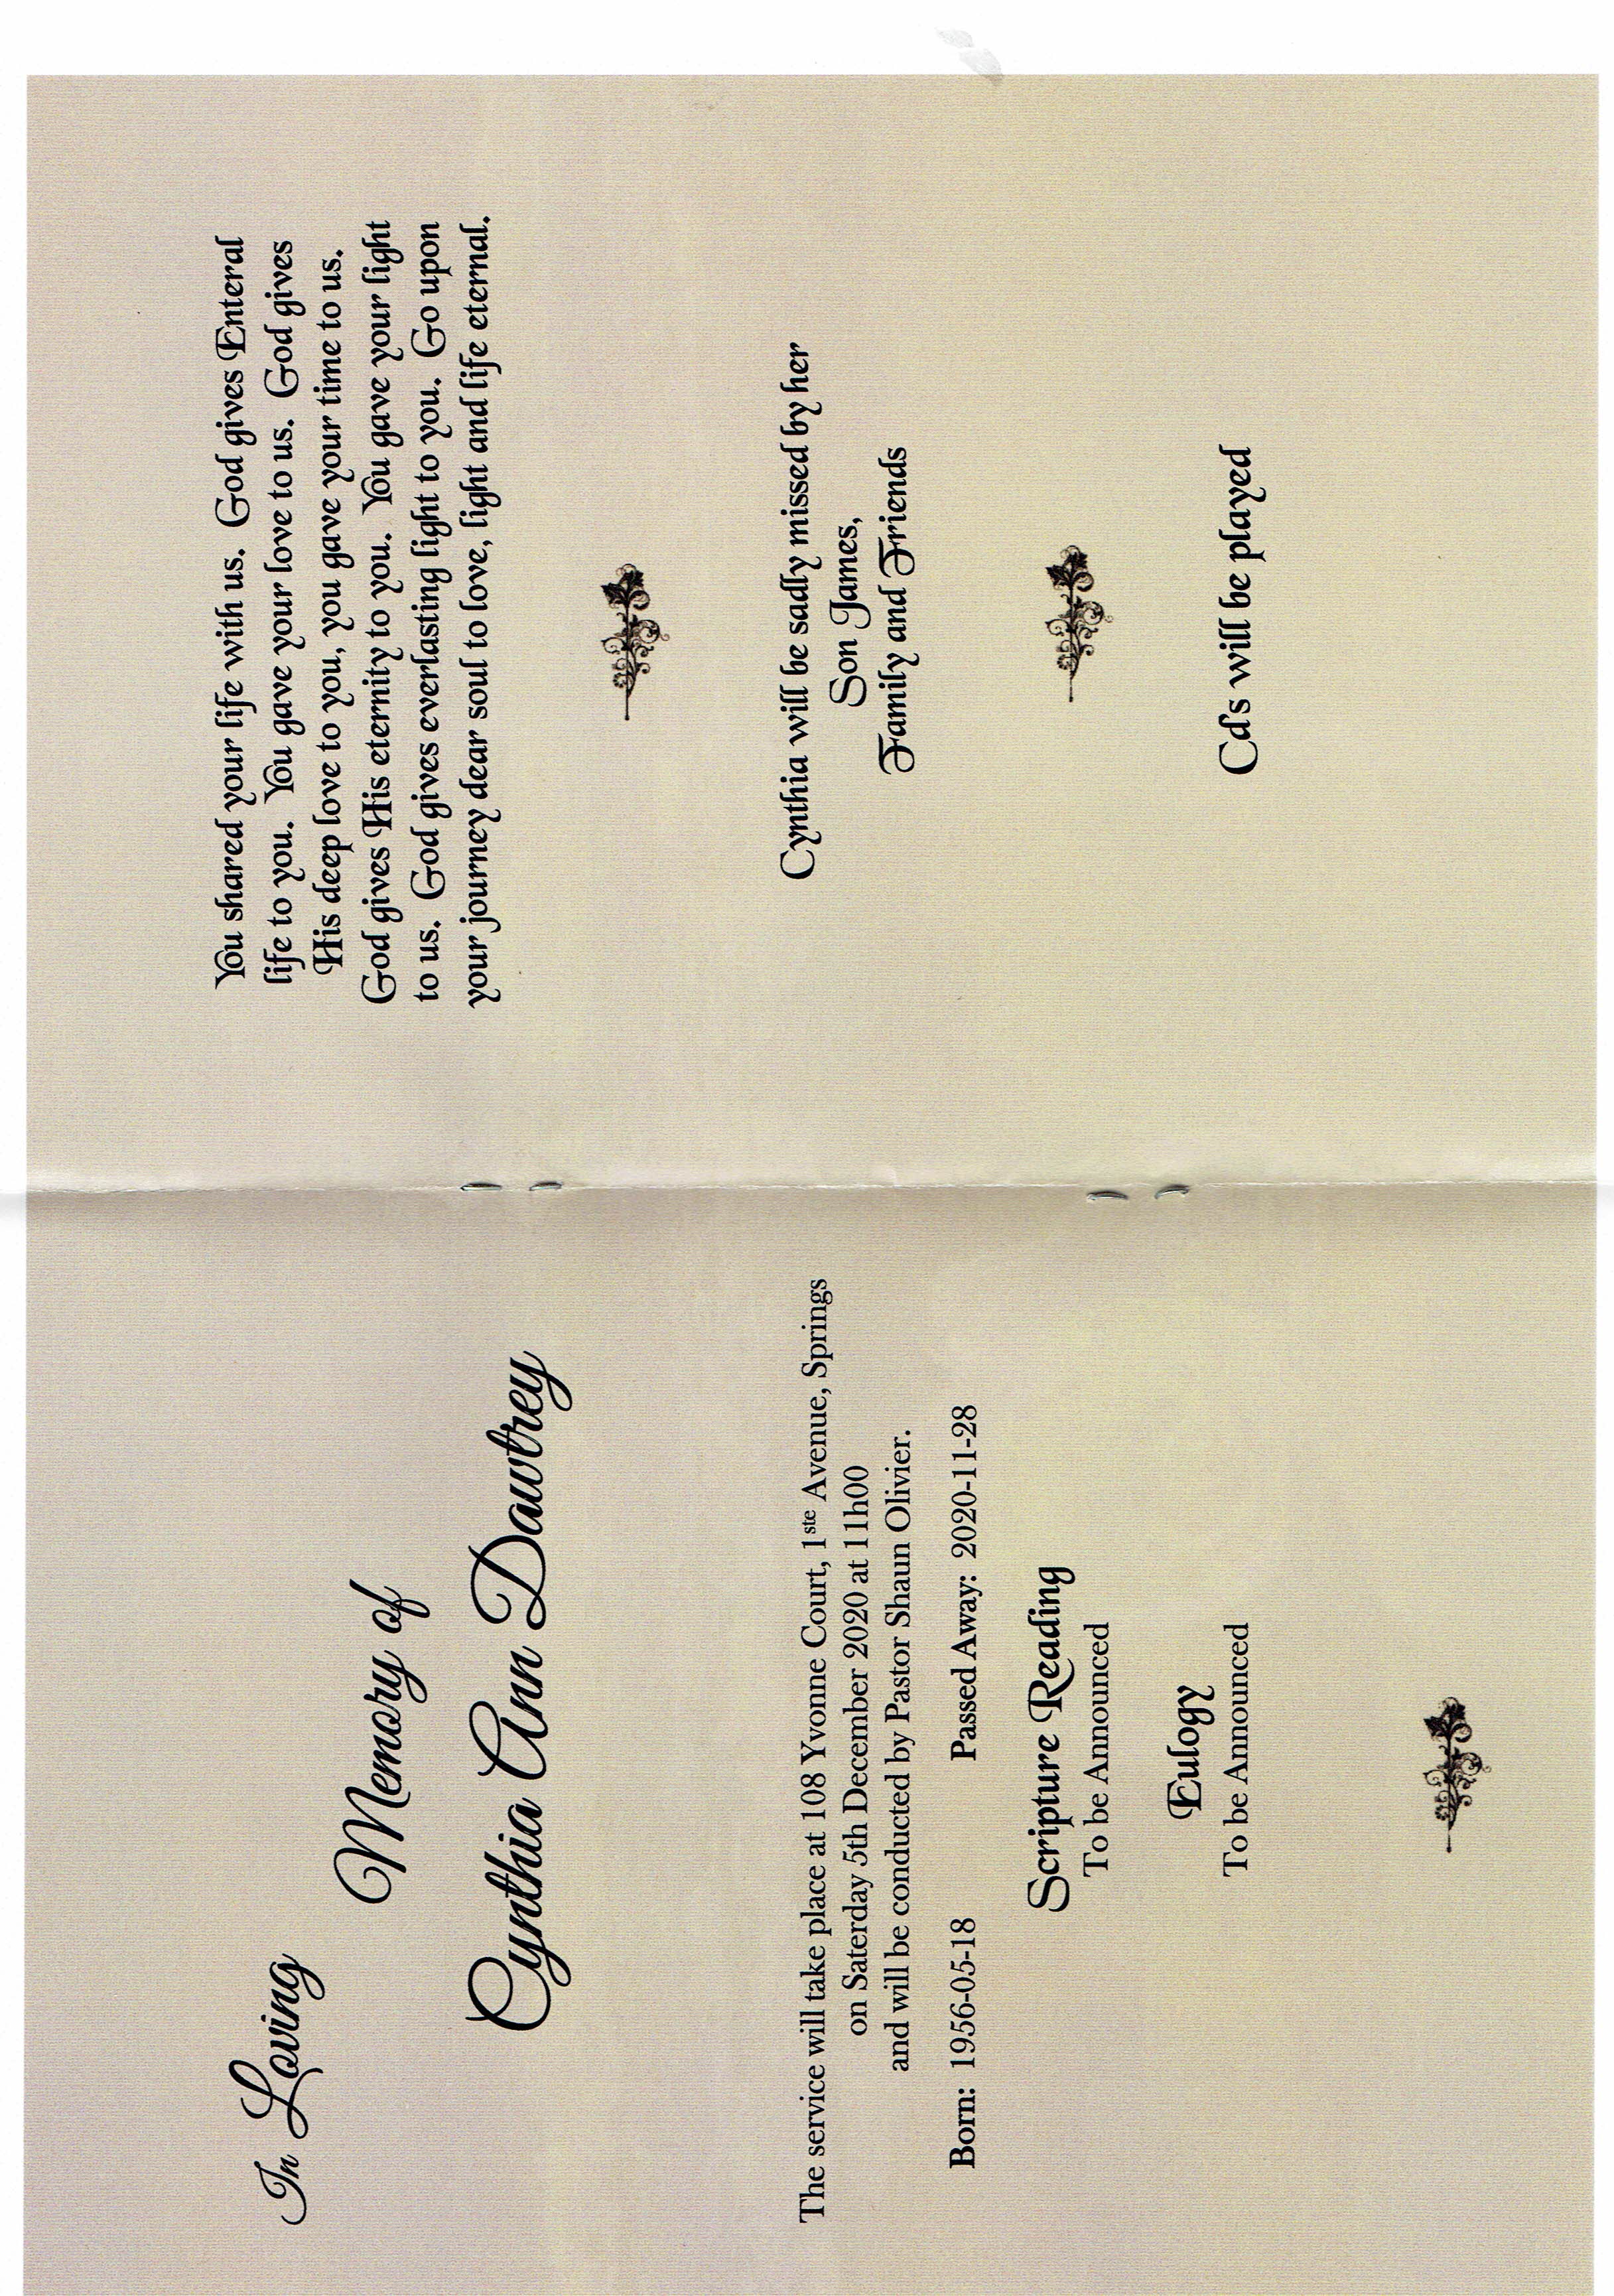 In Loving
Memory of
Cynthia Ann Dawtrey
The service will take place at 108 Yvonne Court, 1ste Avenue, Springs
on Saterday 5th December 2020 at 11h00
and will be conducted by Pastor Shaun Olivier.
Born: 1956-05-18 Passed Away: 2020-11-28
Scripture Reading
To be Announced
Eulogy
To be Announced
You shared your life with us. God gives Enteral
life to you. You gave your love to us. God gives
His deep love to you, you gave your time to us.
God gives His eternity to you. You gave your light
to us. God gives everlasting light to you. Go upon
your journey dear soul to love, light and life eternal.
Cynthia will be sadly missed by her
Son James,
Family and Friends
Cd's will be played